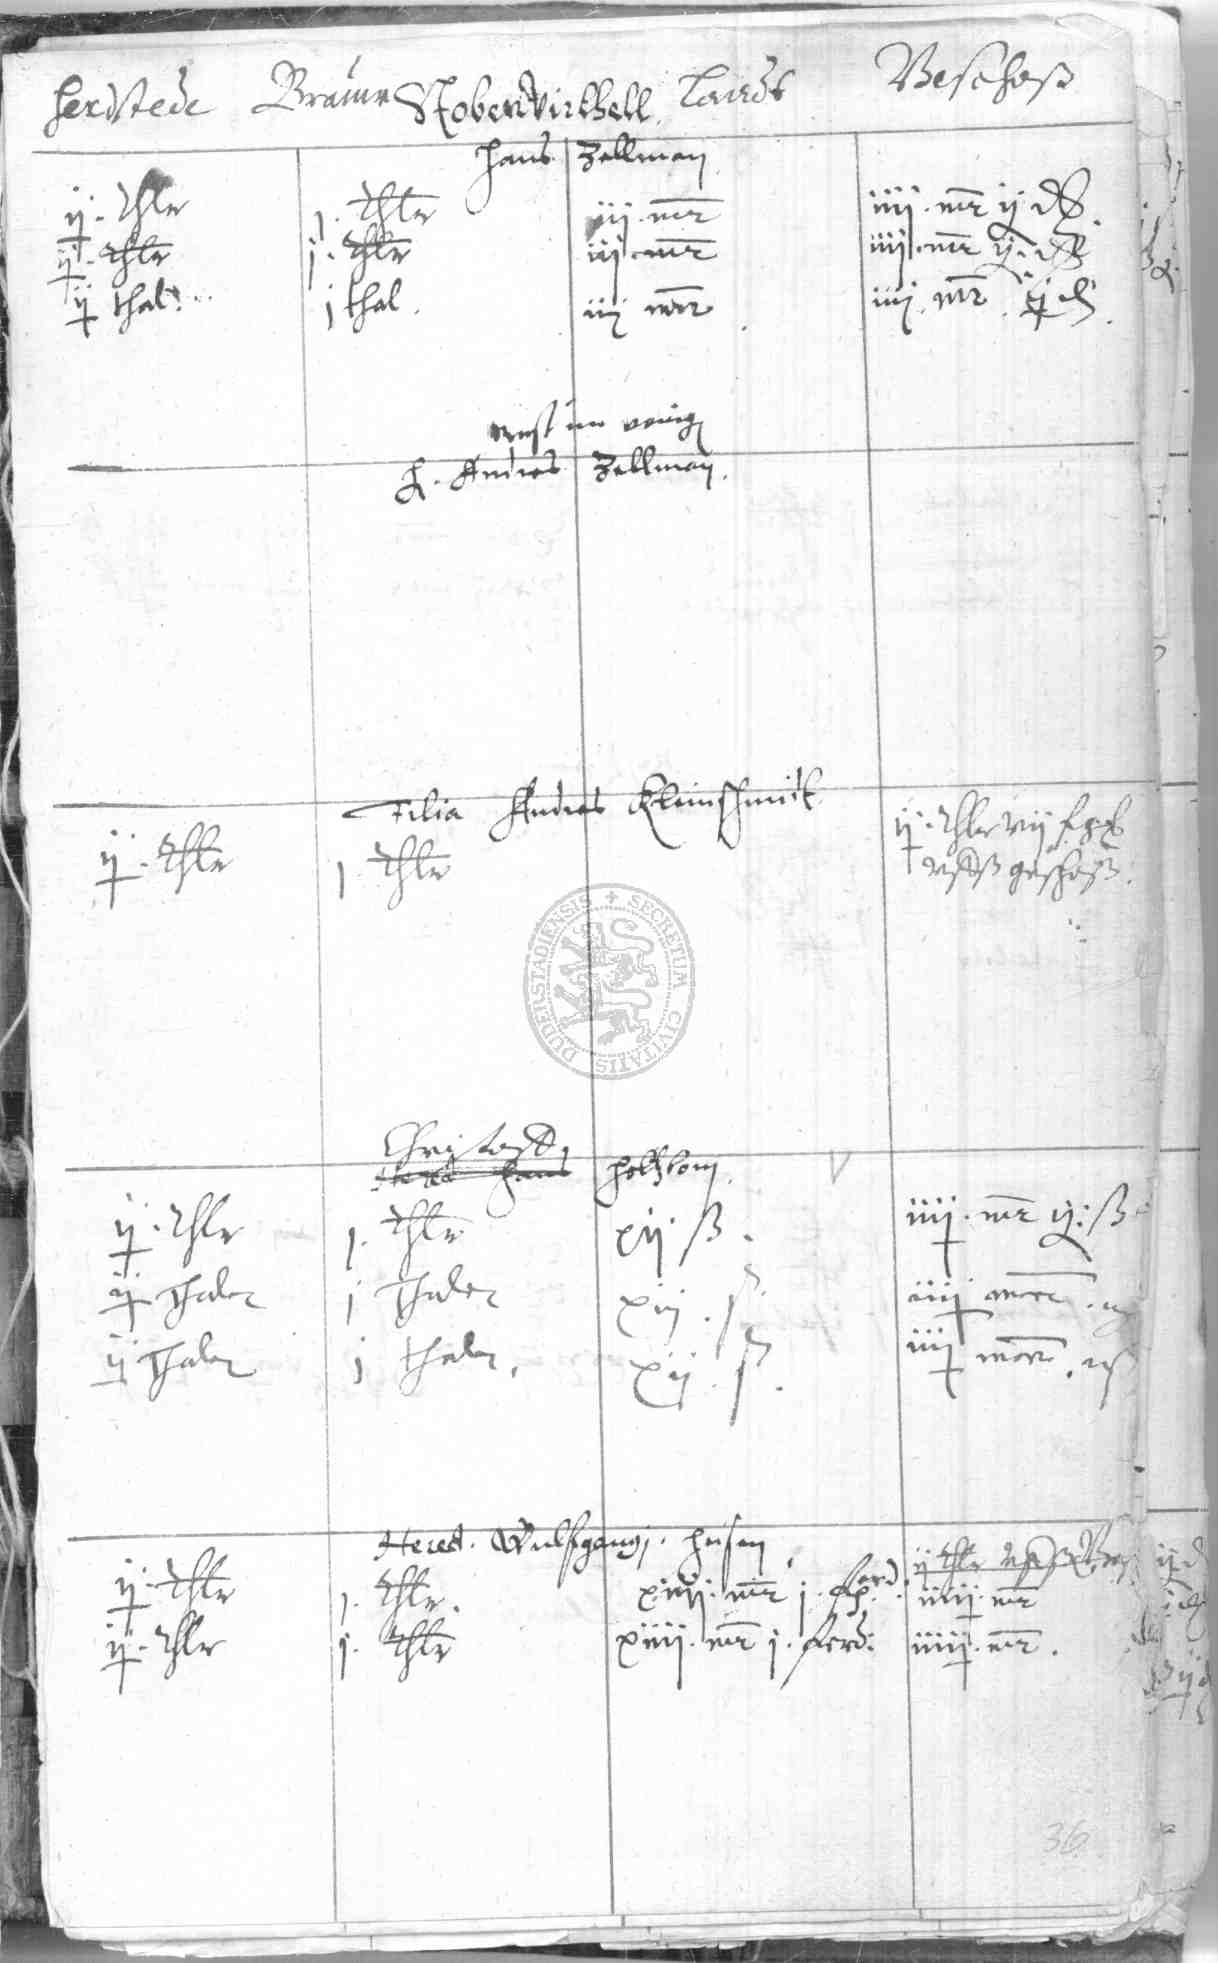 Herdstede Brauw Stobenvirthell Landt Veschoß
Hans Zellman
ij. thlr j. thlr iij. mr iiij. mr ij
ij. thlr j. thlr iij. mr iiij. mr ij
ij thal. j thal. iij mr iiij. mr ij
H. Andres Zellman.
Filia Andres Kleinschmidt
ij. thlr j thlr ij. thlr vij
geschoß.
Christoff
Hered Hans Holtzborn
ij. thlr j. thlr xij ß. iiij. mr ij: ß
ij Thaler j Thaler xij. ß iiij
ij Thaler j thaler, xij. ß. iiij
Hered. Wulfgangj. Heisen
ij thlr
ij. thlr j. thlr. xiiij. mr j. ferd. iiij. mr
ij. thlr j. thlr xiiij. mr j. ferd: iiij. mr.
36
SECRETUM CIVITATIS DUDERSTADIENSIS